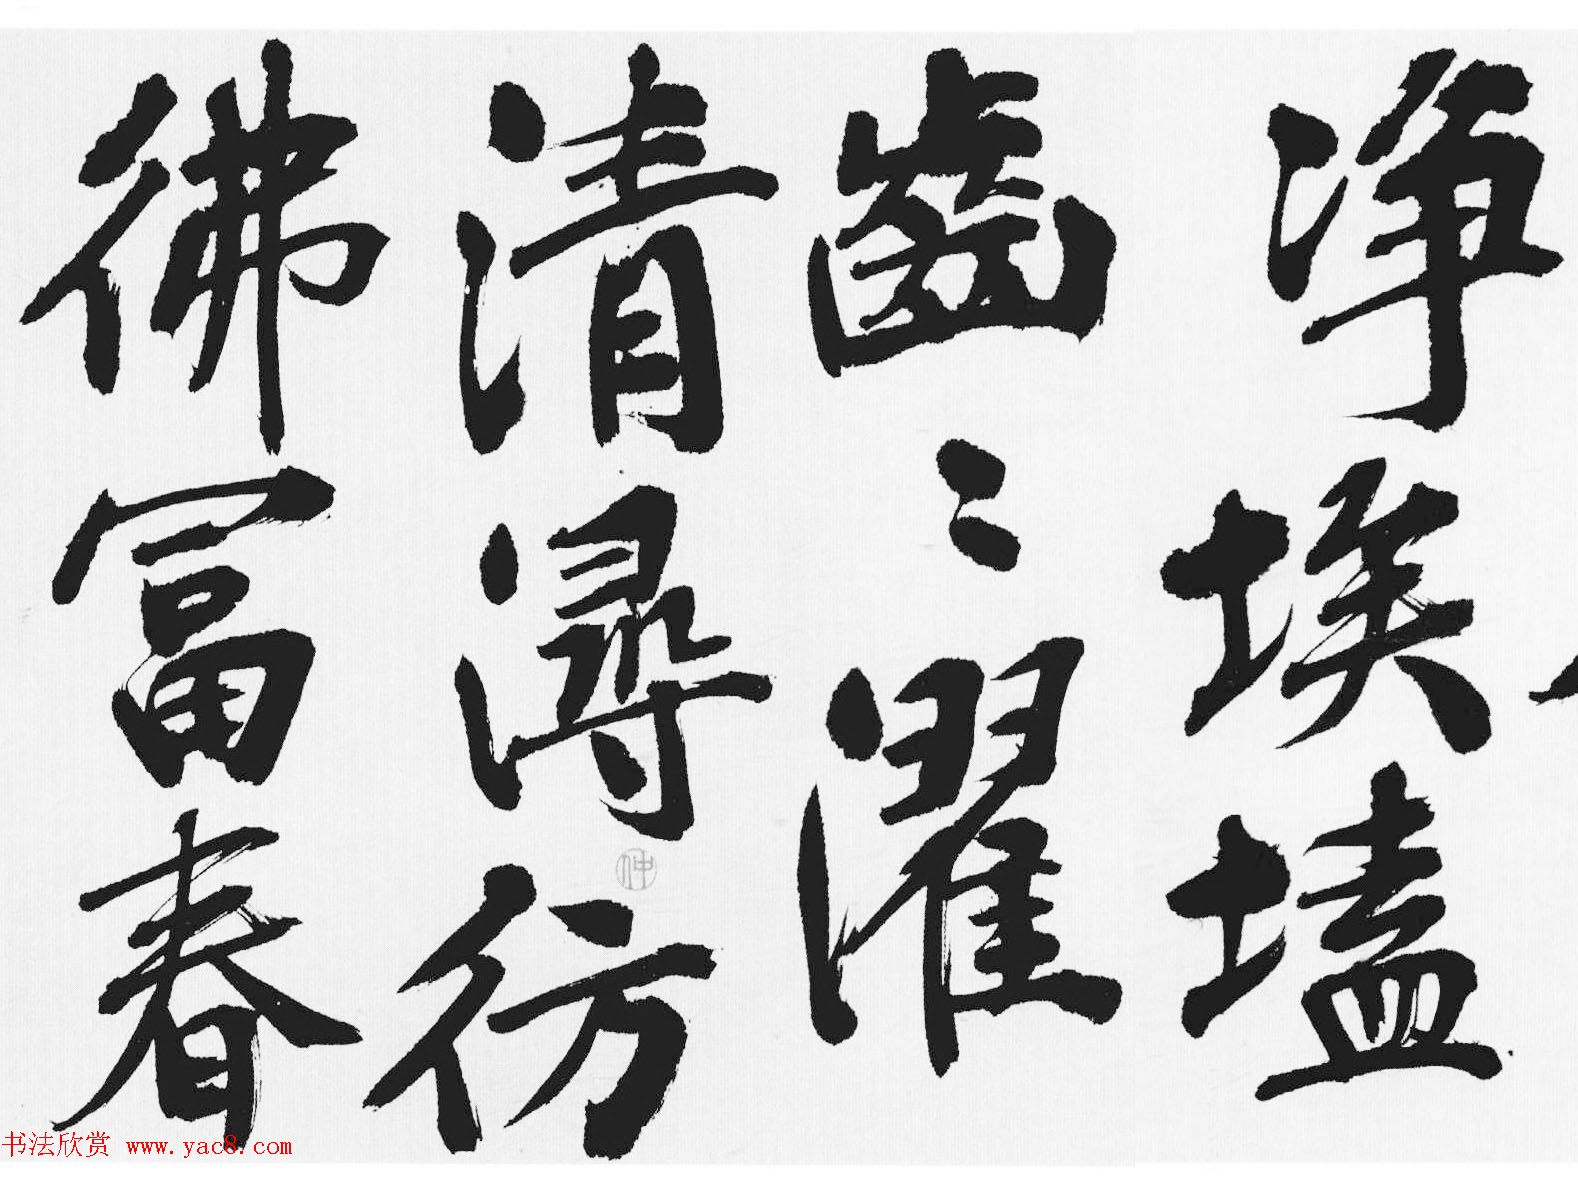 净埃壒
齒〻濯
清潯彷
彿冨春
仲
书法欣赏 www.yac8.com